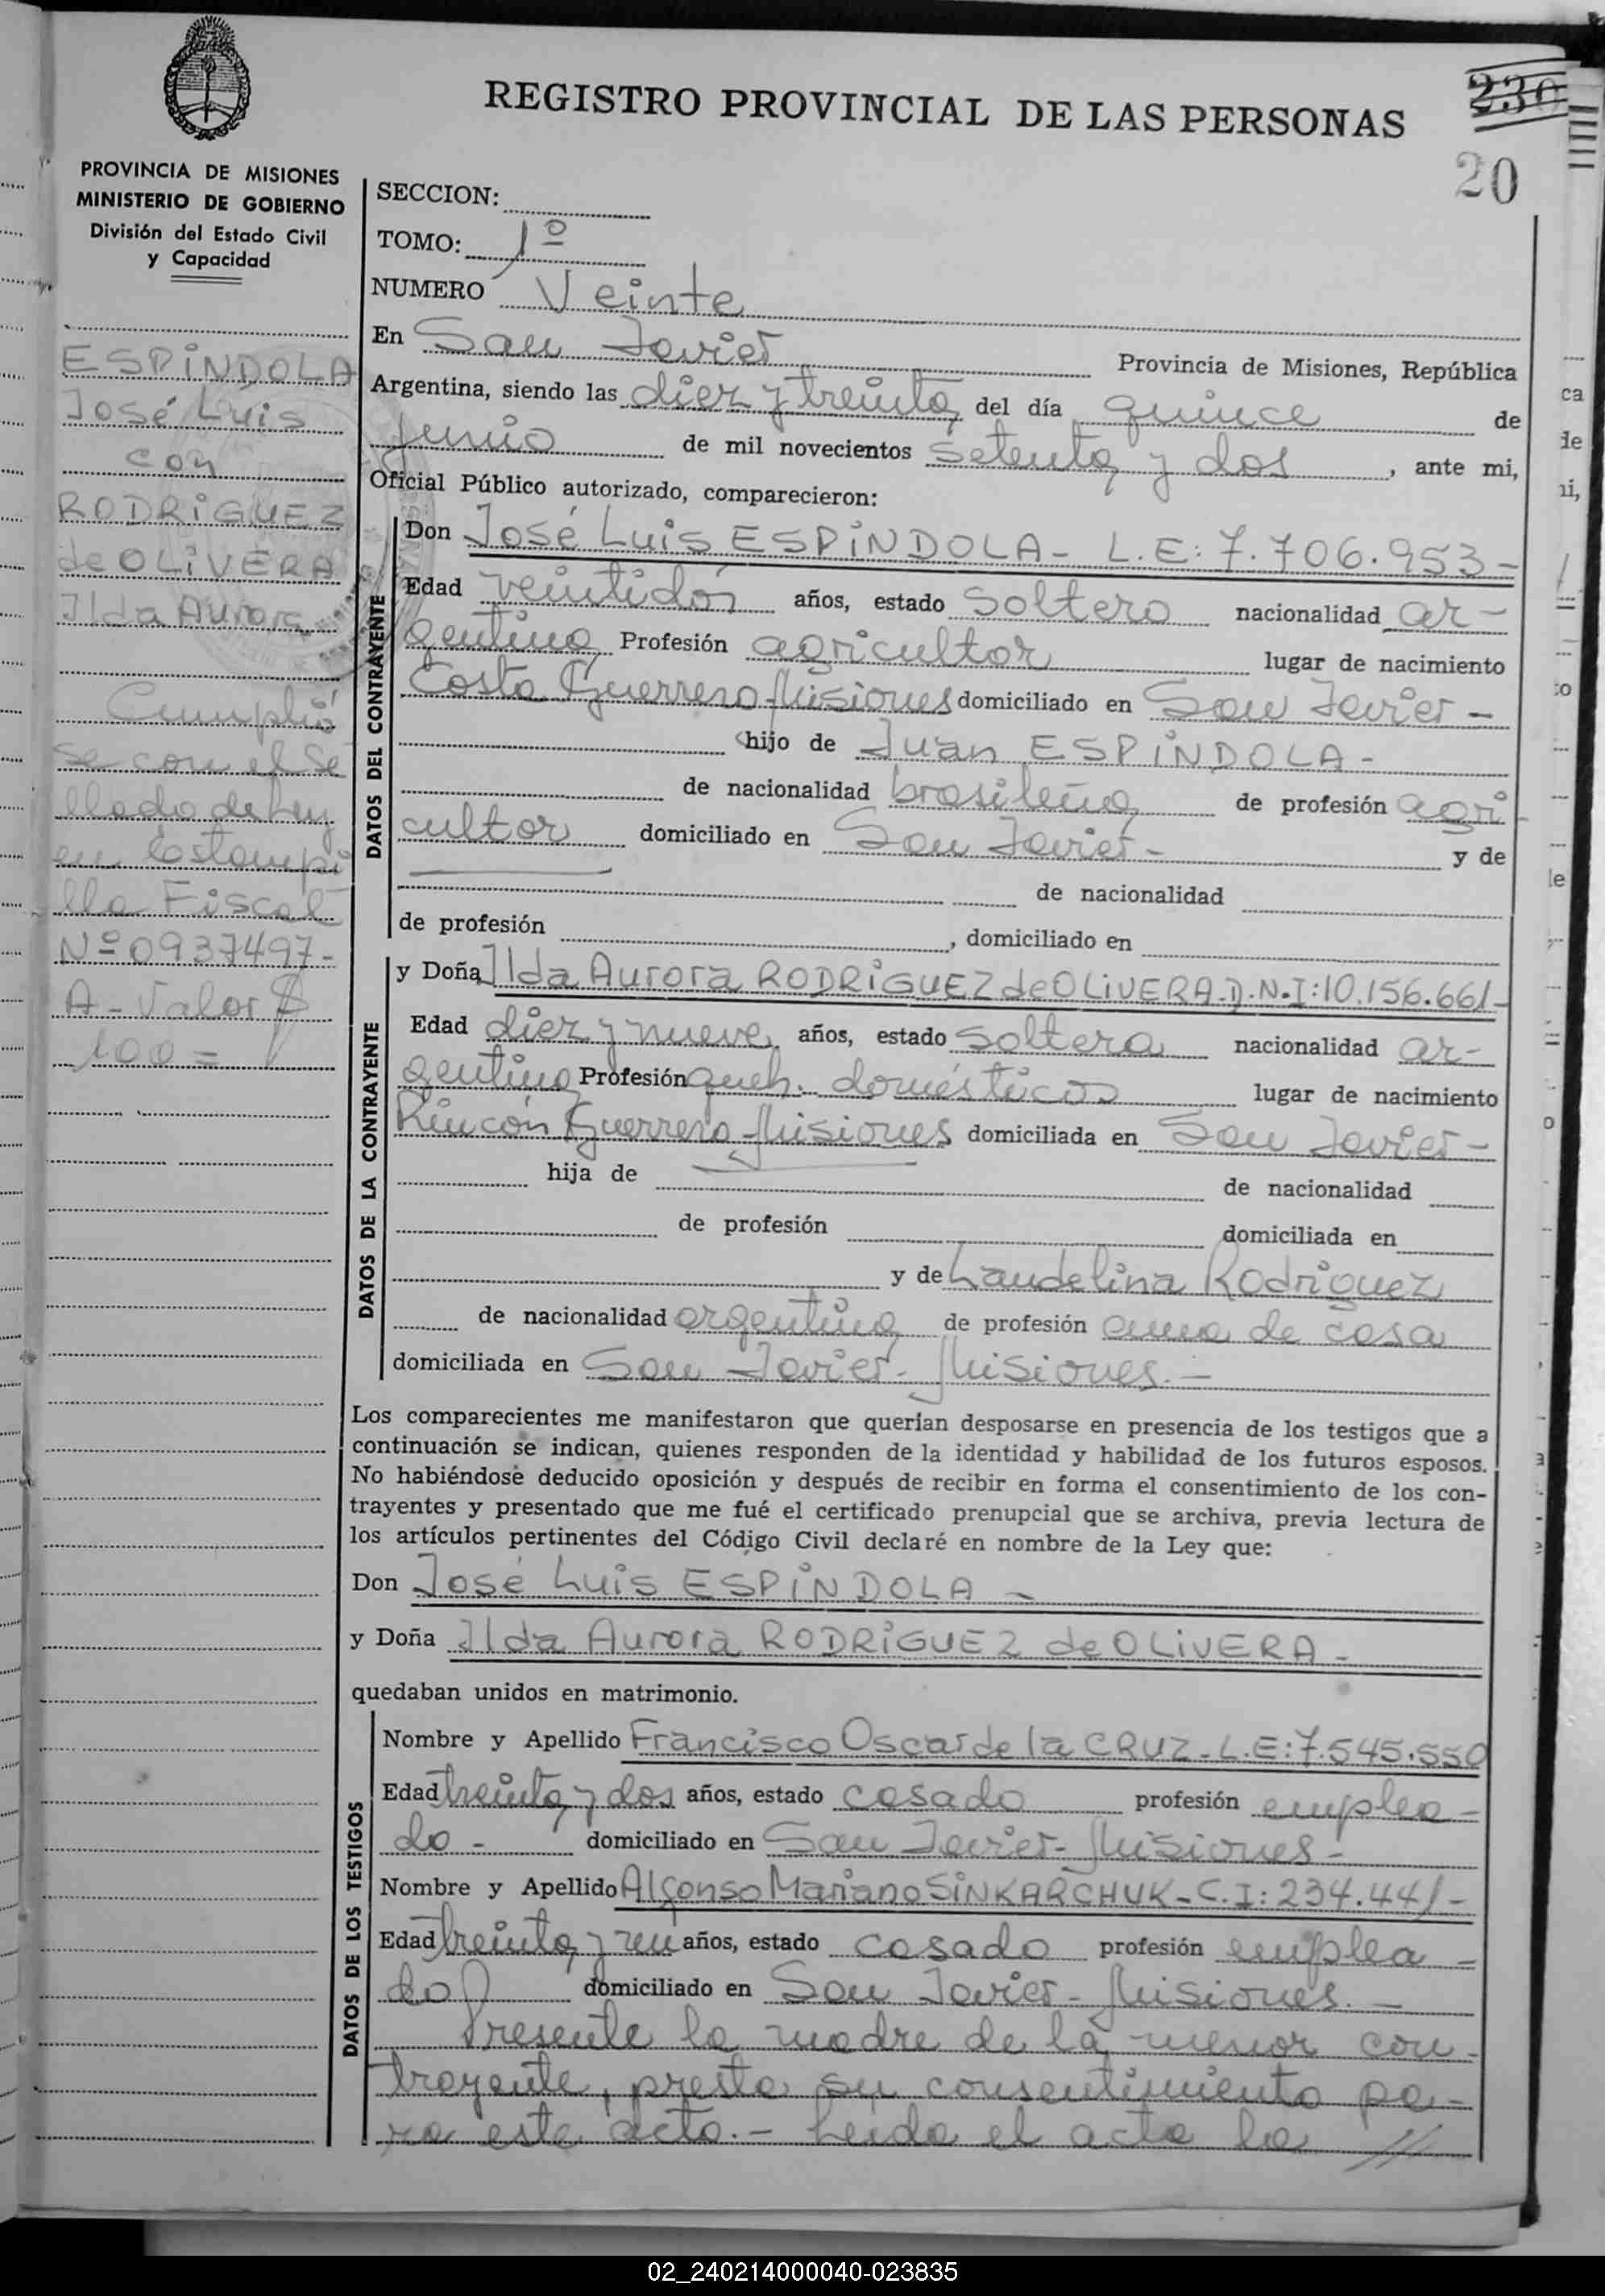 REGISTRO PROVINCIAL DE LAS PERSONAS
230
20
PROVINCIA DE MISIONES
MINISTERIO DE GOBIERNO
División del Estado Civil
y Capacidad
ESPÍNDOLA
José Luis
con
RODRIGUEZ
de OLIVERA
Ilda Aurora
Cumplió
se con el Se
llado de Ley
en Estampi
lla Fiscal
Nº 0937497-
A-Valor $
100=
SECCION:
TOMO: 1º
NUMERO Veinte
En San Javier Provincia de Misiones, República
Argentina, siendo las diez y treinta del día quince de
junio de mil novecientos setenta y dos, ante mi,
Oficial Público autorizado, comparecieron:
DATOS DEL CONTRAYENTE
Don José Luis ESPÍNDOLA- L.E: 7.706.953-
Edad veintidós años, estado soltero nacionalidad ar-
gentina Profesión agricultor lugar de nacimiento
Costa Guerrero Misiones domiciliado en San Javier-
hijo de Juan ESPÍNDOLA-
de nacionalidad brasileña de profesión agri-
cultor domiciliado en San Javier- y de
de nacionalidad
de profesión , domiciliado en
DATOS DE LA CONTRAYENTE
y Doña Ilda Aurora RODRIGUEZ de OLIVERA.D.N.I:10.156.661-
Edad diez y nueve años, estado soltera nacionalidad ar-
gentina Profesión queh. domésticos lugar de nacimiento
Rincón Guerrero Misiones domiciliada en San Javier-
hija de de nacionalidad
de profesión domiciliada en
y de Laudelina Rodriguez
de nacionalidad argentina de profesión ama de casa
domiciliada en San Javier- Misiones.-
Los comparecientes me manifestaron que querían desposarse en presencia de los testigos que a
continuación se indican, quienes responden de la identidad y habilidad de los futuros esposos.
No habiéndose deducido oposición y después de recibir en forma el consentimiento de los con-
trayentes y presentado que me fué el certificado prenupcial que se archiva, previa lectura de
los artículos pertinentes del Código Civil declaré en nombre de la Ley que:
Don José Luis ESPÍNDOLA-
y Doña Ilda Aurora RODRIGUEZ de OLIVERA-
quedaban unidos en matrimonio.
DATOS DE LOS TESTIGOS
Nombre y Apellido Francisco Oscar de la CRUZ-L.E:7.545.550
Edad treinta y dos años, estado casado profesión emplea-
do- domiciliado en San Javier- Misiones-
Nombre y Apellido Alfonso Mariano SINKARCHUK-C.I:234.441-
Edad treinta y un años, estado casado profesión emplea-
do domiciliado en San Javier- Misiones.-
Presente la madre de la menor con-
trayente, presta su consentimiento pa-
ra este acto.- Leída el acta la //
02_240214000040-023835